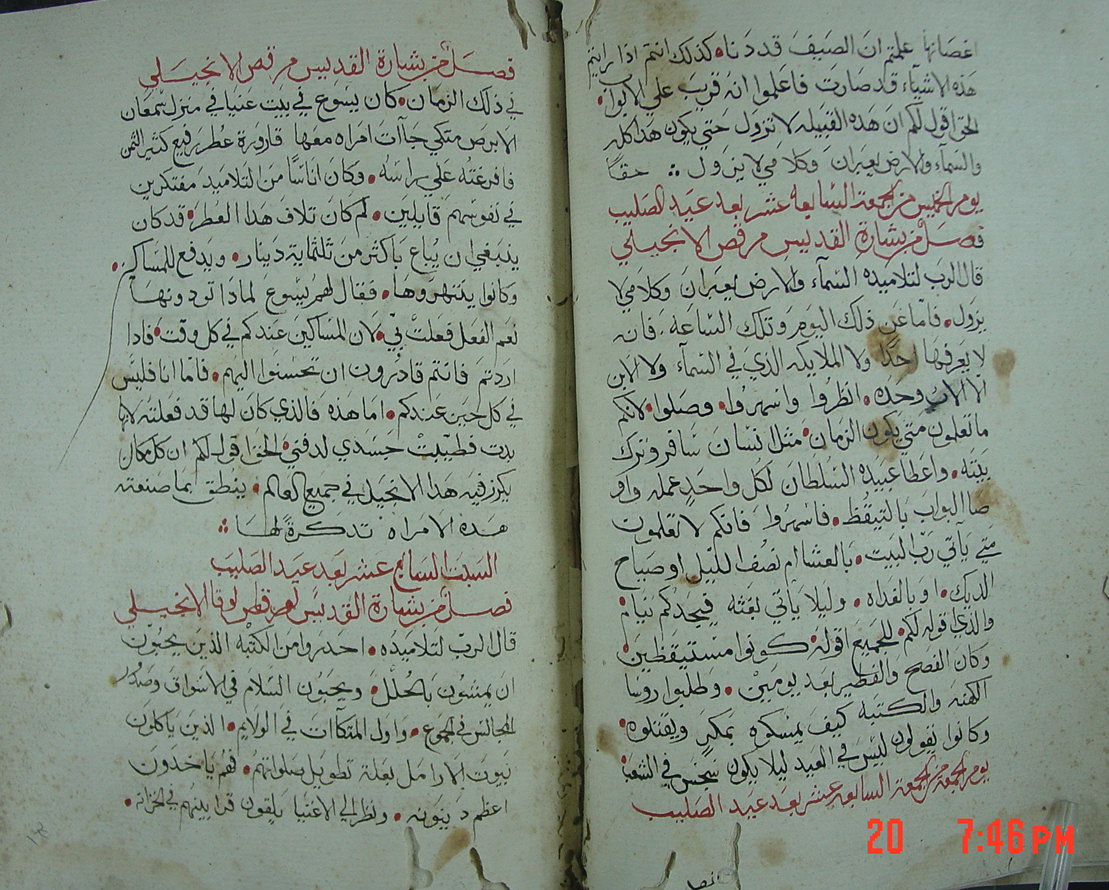 اغصانها علمتم ان الصيف قد دنا • كذلك انتم اذا رايتم
هذه الاشياء قد صارت فاعلموا انه قريب علي الابواب •
الحق اقول لكم ان هذه القبيله لا تزول حتي يكون هذا كله
والسماء والارض يعبران وكلامي لا يزول ܀ حقًا
يوم الخميس من الجمعة السابعة عشر بعد عيد الصليب
فصل من بشارة القديس مرقص الانجيلي
قال الرب لتلاميذه السماء والارض يعبران وكلامي لا
يزول • فاما عن ذلك اليوم وتلك الساعه • فانه
لا يعرفها احدًا ولا الملايكه الذي في السماء ولا الابن
الا الاب وحده • انظروا واسهروا • وصلوا • لانكم
ما تعلمون متي يكون الزمان • مثل انسان سافر وترك
بيته • واعطا عبيده السلطان لكل واحدٍ عمله واو
صا البواب بالتيقظ • فاسهروا فانكم لا تعلموت
متي ياتي رب البيت • بالعشا ام نصف الليل او صياح
الديك • او بالغداه • وليلا ياتي بغته فيجدكم نيام •
والذي اقوله لكم • للجميع اقوله • كونوا مستيقظين •
وكان الفصح والفطير بعد يومين • وطلبوا روسا
الكهنه والكتبه كيف يمسكوه بمكرٍ ويقتلوه •
وكانوا يقولون ليس في العيد ليلا يكون سجس في الشعب •
يوم الجمعة من الجمعة السابعه عشر بعد عيد الصليب
فصل من بشارة القديس مرقص الانجيلي
في ذلك الزمان • كان يسوع في بيت عنيا في منزل سمعان
الابرص متكي جاآت امراه معها قارورة عطر رفيع كثير الثمن
فافرغته علي راسه • وكان اناسًا من التلاميذ مفتكرين
في نفوسهم قايلين • لم كان تلاف هذا العطر • قد كان
ينبغي ان يباع باكثر من ثلثماية دينار • ويدفع للمساكين •
وكانوا ينتهروها • فقال لهم يسوع لماذا تودونها
نعم الفعل فعلت بي • لان المساكين عندكم في كل وقت • فاذا
اردتم فانتم قادرون ان تحسنوا اليهم • فاما انا فليس
في كل حين عندكم • اما هذه فالذي كان لها قد فعلته لانها
بدت فطيبت جسدي لدفني • الحق اقول لكم ان كل مكان
يكرز فيه هذا الانجيل في جميع العالم • ينطق بما صنعته
هذه الامراه تدكرةً لها ܀
السبت السابع عشر بعد عيد الصليب
فصل من بشارة القديس لوقا الانجيلي
قال الرب لتلاميذه • احدروا من الكتبه الذين يحبون
ان يمشون بالحلل • ويحبون السلام في الاسواق وصدور
المجالس في الجموع • واول المتكاات في الولايم • الذين ياكلون
بيوت الارامل بعلة تطويل صلواتهم • فهم ياخذون
اعظم دينونه • ونظر الي الاغنيا يلقون قرابينهم في الخزانه •
20 7:46 PM